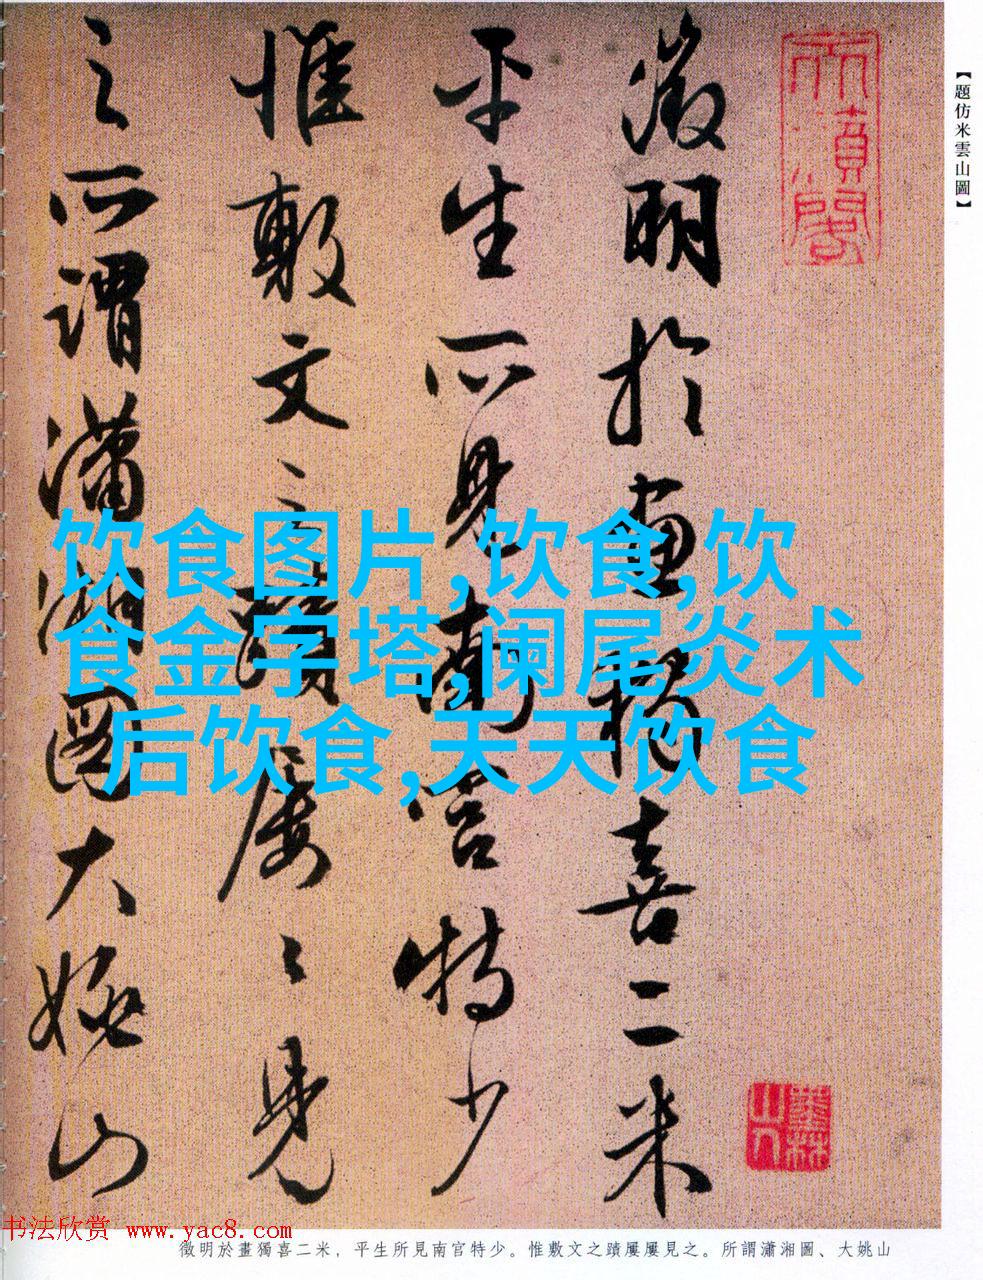 【題仿米雲山圖】
徵明於畫獨喜二米
平生所見南宫特少
惟敷文之蹟屢〻見
之所謂瀟湘圖大姚山
墨林
山人
饮食图片,饮食,饮
食金字塔,阑尾炎术
后饮食,天天饮食
书法欣赏 www.yac8.com
徵明於畫獨喜二米，平生所見南宮特少。惟敷文之蹟屢屢見之。所謂瀟湘圖、大姚山